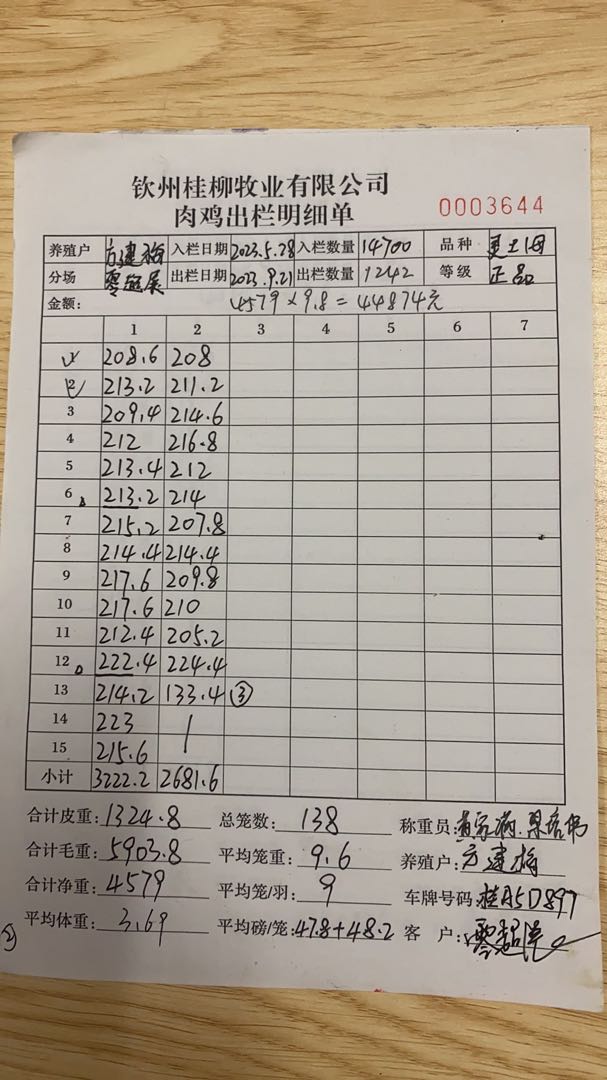 钦州桂柳牧业有限公司
肉鸡出栏明细单 0003644
养殖户 方建梅 入栏日期 2023.5.28 入栏数量 14700 品种 土
分场 出栏日期 2023.9.21 出栏数量 1242 等级 正品
金额: 4579×9.8=44874元
1 2 3 4 5 6 7
1 208.6 208
2 213.2 211.2
3 209.4 214.6
4 212 216.8
5 213.4 212
6 213.2 214
7 215.2 207.8
8 214.4 214.4
9 217.6 209.8
10 217.6 210
11 212.4 205.2
12 222.4 224.4
13 214.2 133.4 ③
14 223
15 215.6
小计 3222.2 2681.6
合计皮重: 1324.8 总笼数: 138 称重员:
合计毛重: 5903.8 平均笼重: 9.6 养殖户: 方建梅
合计净重: 4579 平均笼/羽: 9 车牌号码: 桂A5D897
平均体重: 3.69 平均磅/笼: 47.8+48.2 客户:
②